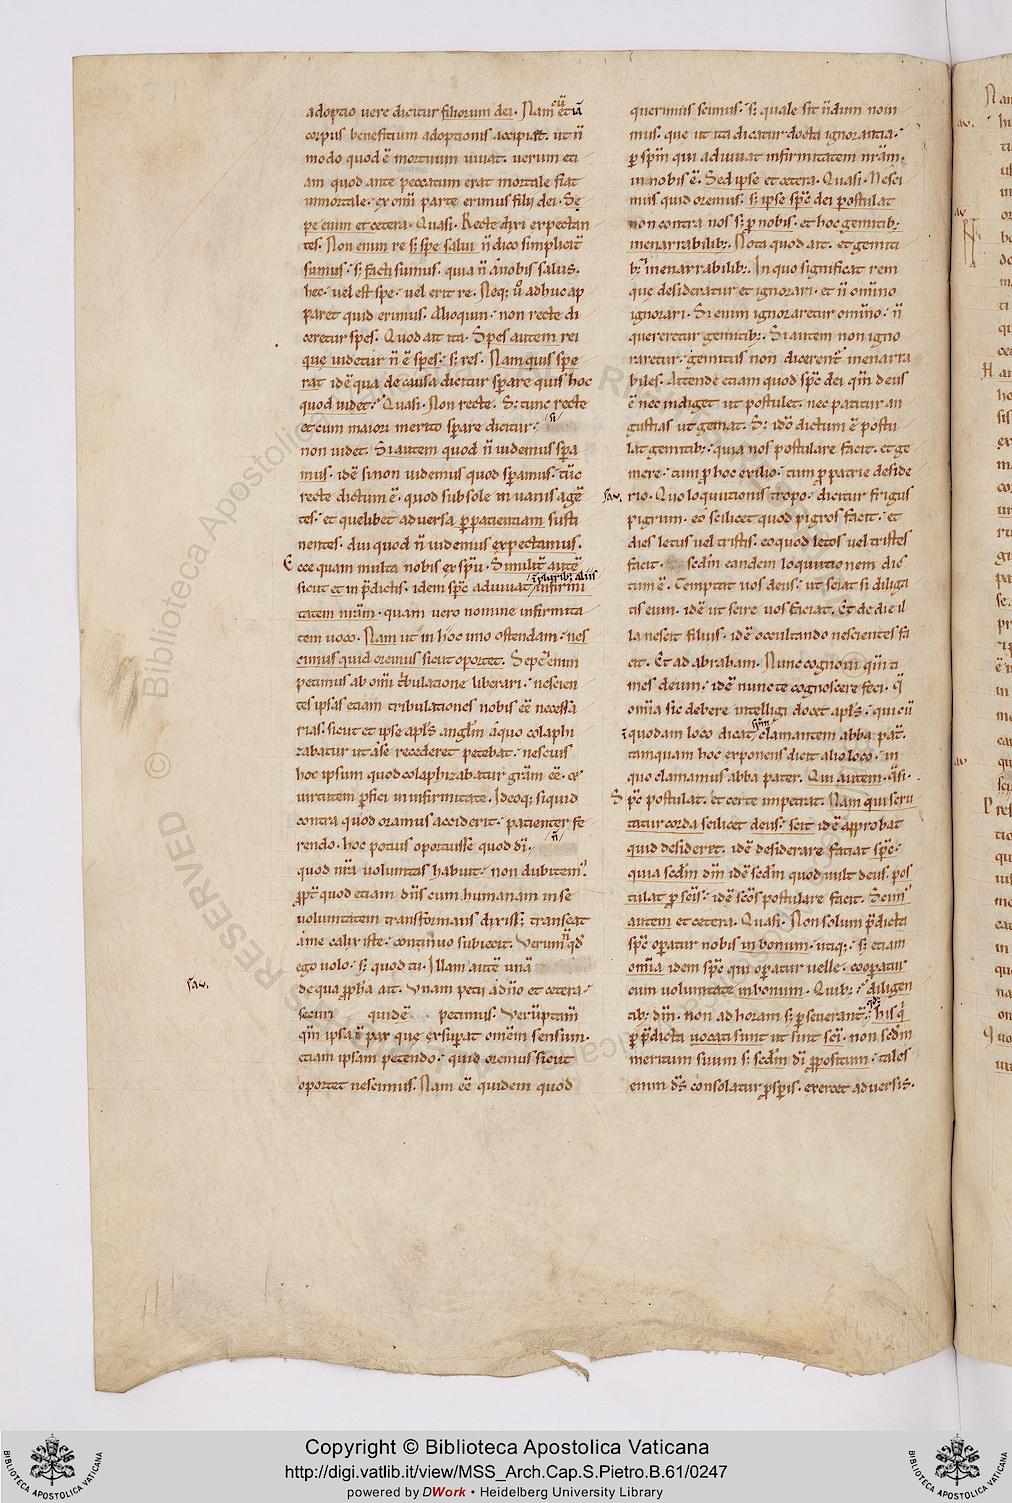 adoptio vere dicitur filiorum dei. Nam cū & iā
corpus benefitium adoptionis accipiat. ut n̄
modo quod ē mortuum vivat. verum eti
am quod ante peccatum erat mortale fiat
inmortale. ex om̄i parte erimus filii dei. Se
pe enim et cetera. Quasi. Recte dixi expectan
tes. Non enim re s; spe salvi n̄ dico simplicit̄
sumus. s; facti sumus. quia n̄ a nobis salus.
hec. vel est spe. vel erit re. Neq; v̊ adhuc ap
paret quid erimus. Alioquin. non recte di
ceretur spes. Quod ait ita. Spes autem rei
que videtur n̄ ē spes. s; res. Nam quis spe
rat idē qua de causa dicitur sꝑare quis hoc
quod videt. Quasi. Non recte. S; tunc recte
et cum maiori merito sꝑare dicitur. si
non videt. Si autem quod n̄ videmus sꝑa
mus. idē si non videmus quod sꝑamus. tūc
recte dictum ē. quod sub sole in vanis agē
tes. et quelibet adversa ꝑ patientiam susti
nentes. diu quod n̄ videmus expectamus.
Ecce quam multa nobis ex sp̄u. Similit̄ autē
sicut et in p̄dictis. idem sp̄c adiuvat in plurib; aliis infirmi
tatem nr̄am. quam vero nomine infirmita
tem voco. Nam ut in hoc uno ostendam. nes
cimus quid oremus sicut oportet. Sepe enim
petimus ab om̄i tribulatione liberari. nescien
tes ipsas etiam tribulationes nobis eē necessa
rias. sicut et ipse apl̄s angl̄m a quo colaphi
zabatur ut a se recederet petebat. nescius
hoc ipsum quod colaphizabatur gr̄am eē. &
virtutem ꝑfici in infirmitate. Idcoq; siquid
contra quod oramus acciderit. patienter fe
rendo. hoc potius oportuisse quod di.
quod nr̄a voluntas habuit. non dubitem.
ꝓpt̄ quod etiam dn̄s cum humanam in se
voluntatem transformans dixiss; transeat
a me calix iste. continuo subiecit. Verum n̄ qd̄
ego volo. s; quod tu. Illam autē unā
de qua ꝓpha ait. Unam petii a dn̄o et cetera.
securi quidē petimus. Verūptam̄
qm̄ ipsa ē pax que exsuꝑat omēm sensum.
etiam ipsam petendo. quid oremus sicut
oportet nescimus. Nam eē quidem quod
querimus scimus. s; quale sit n̄dum novi
mus. que ut ita dicatur docta ignorantia.
ꝑ sp̄m qui adiuvat infirmitatem nr̄am.
in nobis ē. Sed ipse et cetera. Quasi. Nesci
mus quid oremus. s; ipse sp̄c dei postulat
non contra nos s; ꝓ nobis. et hoc gemitib;
inenarrabilib;. Nota quod ait. et gemiti
b; inenarrabilib;. In quo significat rem
que desideratur et ignorari. et n̄ om̄ino
ignorari. Si enim ignoraretur om̄ino. n̄
quereretur gemitib;. Si autem non igno
raretur. gemitus non dicerent̄ inenarra
biles. Attende etiam quod sp̄c dei qm̄ deus
ē nec indiget ut postulet. nec patitur an
gustias ut gemat. S; idō dictum ē postu
lat gemitib;. quia nos postulare facit. et ge
mere. tum ꝓ hoc exilio. tum ꝓ patrie deside
rio. Quo loquutionis tropo. dicitur frigus
pigrum. eō scilicet quod pigros facit. et
dies letus vel tristis. eo quod letos vel tristes
facit. Sc̄dm eandem loquutionem dic
tum ē. Temptat vos deus. ut sciat si diliga
tis eum. idē ut scire vos faciat. Et de die il
la nescit filius. idē occultando nescientes fa
cit. Et ad abraham. Nunc cognovi qm̄ ti
mes deum. idē nunc te cognoscere feci. Q̄
om̄ia sic debere intelligi docet apl̄s. qui cū
quodam loco dicat sp̄m clamantem abba pat̄.
tamquam hoc exponens dicit alio loco. in
quo clamamus abba pater. Qui autem. Q̄si.
Sp̄c postulat. et certe impetrat. Nam qui scru
tatur corda scilicet deus. scit idē approbat
quid desideret. idē desiderare faciat sp̄c.
quia sc̄dm dm̄ idē sc̄dm quod vult deus. pos
tulat ꝓ scīs. idē sc̄os postulare facit. Scim̄
autem et cetera. Quasi. Non solum p̄dicta
sp̄c oꝑatur nobis in bonum. utiq;. s; etiam
om̄ia idem sp̄c qui oꝑatur velle. cooꝑatur
cum voluntate in bonum. Quib;. diligen
tib; dm̄. non ad horam s; ꝑseverant̄. his q̄
ꝑ p̄dicta vocati sunt ut sint sci. non sc̄dm
meritum suum s; sc̄dm di ꝓpositum. tales
enim ds̄ consolatur ꝓsꝑis. exercet adversis.
Copyright © Biblioteca Apostolica Vaticana
http://digi.vatlib.it/view/MSS_Arch.Cap.S.Pietro.B.61/0247
powered by DWork • Heidelberg University Library